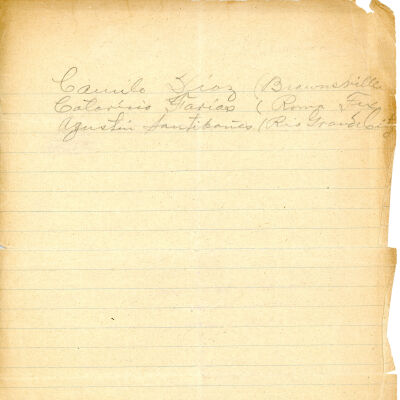 Camilo Diaz (Brownsville
Catarino Farias (Roma Tex
Agustin Santibañes (Rio Grande City